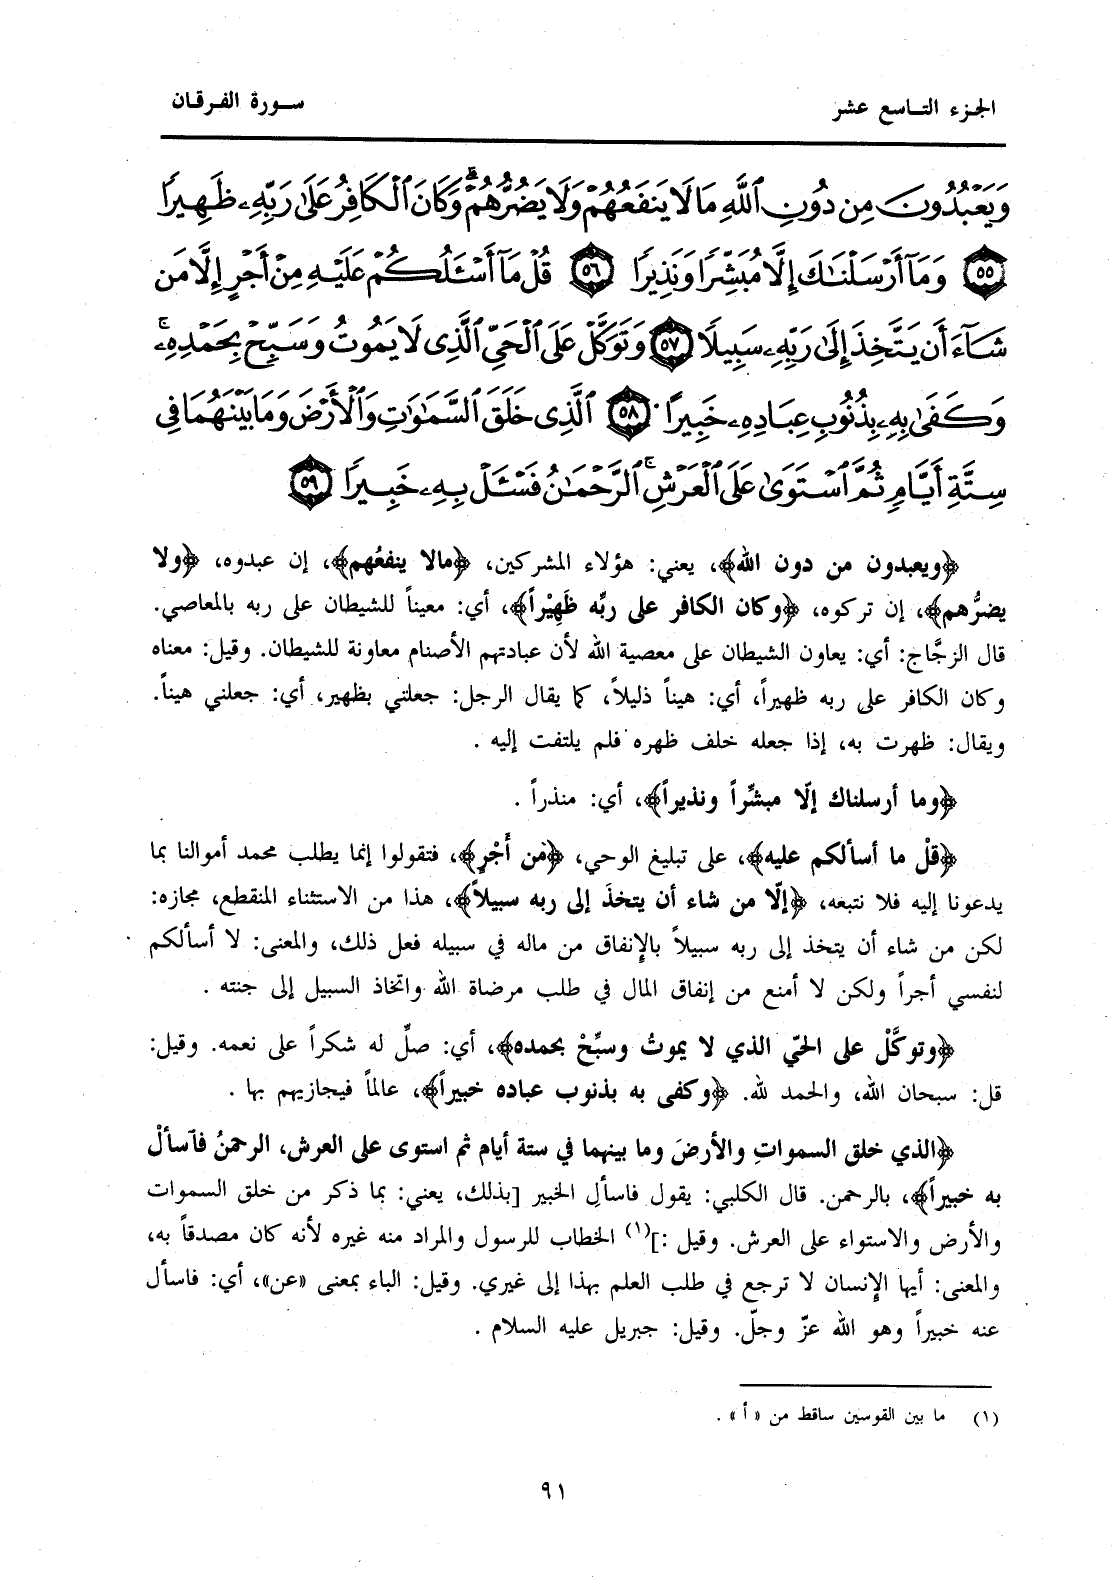 الجزء التاسع عشر
سورة الفرقان
وَيَعْبُدُونَ مِن دُونِ ٱللَّهِ مَا لَا يَنفَعُهُمْ وَلَا يَضُرُّهُمْ ۗ وَكَانَ ٱلْكَافِرُ عَلَىٰ رَبِّهِۦ ظَهِيرًا
٥٥ وَمَآ أَرْسَلْنَـٰكَ إِلَّا مُبَشِّرًا وَنَذِيرًا ٥٦ قُلْ مَآ أَسْـَٔلُكُمْ عَلَيْهِ مِنْ أَجْرٍ إِلَّا مَن
شَآءَ أَن يَتَّخِذَ إِلَىٰ رَبِّهِۦ سَبِيلًا ٥٧ وَتَوَكَّلْ عَلَى ٱلْحَيِّ ٱلَّذِى لَا يَمُوتُ وَسَبِّحْ بِحَمْدِهِۦ ۚ
وَكَفَىٰ بِهِۦ بِذُنُوبِ عِبَادِهِۦ خَبِيرًا ٥٨ ٱلَّذِى خَلَقَ ٱلسَّمَـٰوَٰتِ وَٱلْأَرْضَ وَمَا بَيْنَهُمَا فِى
سِتَّةِ أَيَّامٍ ثُمَّ ٱسْتَوَىٰ عَلَى ٱلْعَرْشِ ۚ ٱلرَّحْمَـٰنُ فَسْـَٔلْ بِهِۦ خَبِيرًا ٥٩
﴿ويعبدون من دون الله﴾، يعني: هؤلاء المشركين، ﴿مالا ينفعُهم﴾، إن عبدوه، ﴿ولا
يضرُّهم﴾، إن تركوه، ﴿وكان الكافر على ربِّه ظَهِيْراً﴾، أي: معيناً للشيطان على ربه بالمعاصي.
قال الزجَّاج: أي: يعاون الشيطان على معصية الله لأن عبادتهم الأصنام معاونة للشيطان. وقيل: معناه
وكان الكافر على ربه ظهيراً، أي: هيناً ذليلاً، كما يقال الرجل: جعلني بظهير، أي: جعلني هيناً.
ويقال: ظهرت به، إذا جعله خلف ظهره فلم يلتفت إليه .
﴿وما أرسلناك إلّا مبشِّراً ونذيراً﴾، أي: منذراً .
﴿قلْ ما أسألكم عليه﴾، على تبليغ الوحي، ﴿مَن أَجْرٍ﴾، فتقولوا إنما يطلب محمد أموالنا بما
يدعونا إليه فلا نتبعه، ﴿إلّا من شاء أن يتخذَ إلى ربه سبيلاً﴾، هذا من الاستثناء المنقطع، مجازه:
لكن من شاء أن يتخذ إلى ربه سبيلاً بالإنفاق من ماله في سبيله فعل ذلك، والمعنى: لا أسألكم
لنفسي أجراً ولكن لا أمنع من إنفاق المال في طلب مرضاة الله واتخاذ السبيل إلى جنته .
﴿وتوكَّلْ على الحيّ الذي لا يموتُ وسبِّحْ بحمده﴾، أي: صلِّ له شكراً على نعمه. وقيل:
قل: سبحان الله، والحمد لله. ﴿وكفى به بذنوب عباده خبيراً﴾، عالماً فيجازيهم بها .
﴿الذي خلق السمواتِ والأرضَ وما بينهما في ستة أيام ثم استوى على العرش، الرحمنُ فآسألْ
به خبيراً﴾، بالرحمن. قال الكلبي: يقول فاسألِ الخبير [بذلك، يعني: بما ذكر من خلق السموات
والأرض والاستواء على العرش. وقيل :](١) الخطاب للرسول والمراد منه غيره لأنه كان مصدقاً به،
والمعنى: أيها الإنسان لا ترجع في طلب العلم بهذا إلى غيري. وقيل: الباء بمعنى «عن»، أي: فاسأل
عنه خبيراً وهو الله عزّ وجلّ. وقيل: جبريل عليه السلام .
(١) ما بين القوسين ساقط من «أ» .
٩١